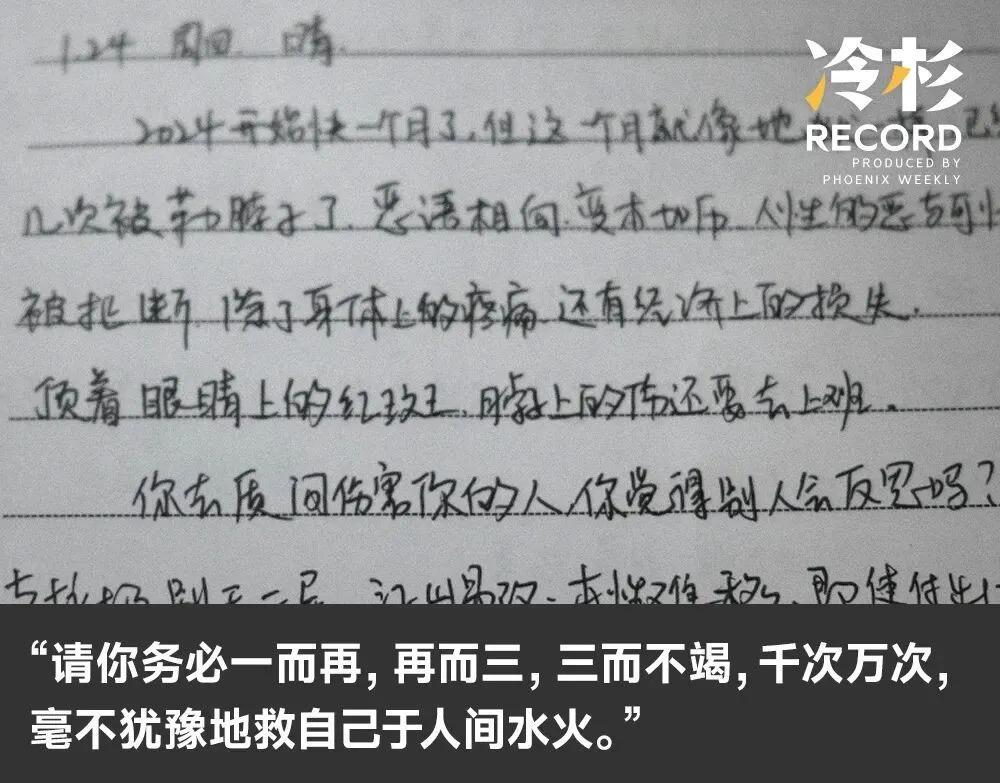 1.24 周四 晴.
冷杉
RECORD
PRODUCED BY
PHOENIX WEEKLY
2024开始快一个月了,但这一个月就像地
几次被勒脖子了.恶语相向.变本加厉.人性的恶与可
被扯断.除了身体上的疼痛.还有经济上的损失.
顶着眼睛上的红斑.脖子上的伤还要去上班.
你去质问伤害你的人,你觉得别人会反思吗?
江山易改.本性难移.即使付出
“请你务必一而再，再而三，三而不竭，千次万次，
毫不犹豫地救自己于人间水火。”